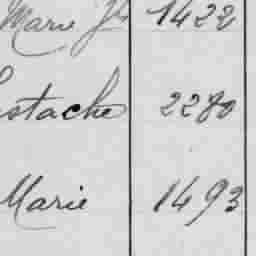 Marie Jh 1422
ustache 2280
Marie 1493